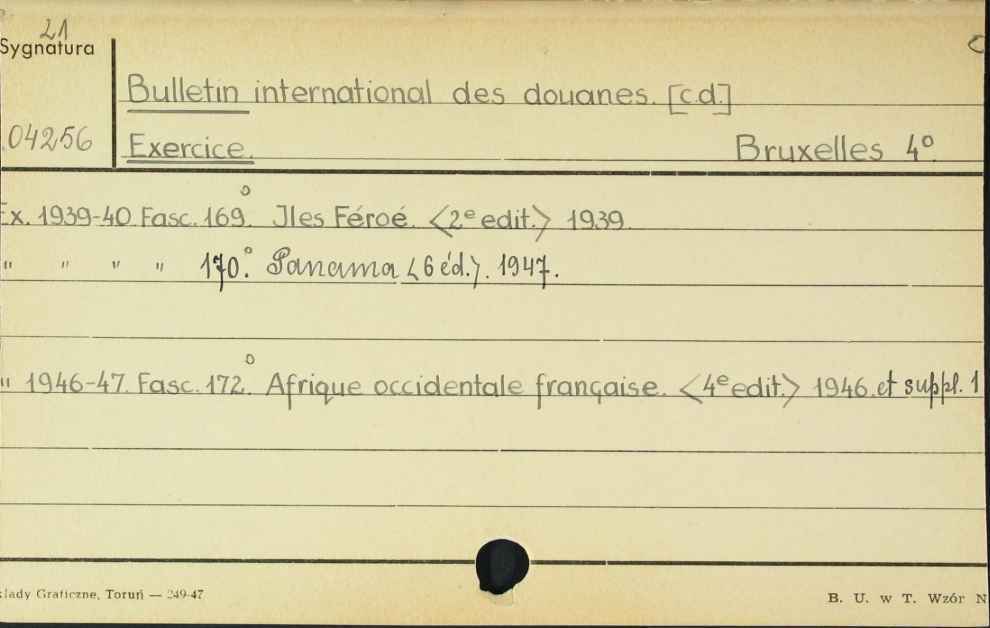 21
Sygnatura
Bulletin international des douanes. [c.d.]
04256
Exercice. Bruxelles 4°
Ex. 1939-40 Fasc. 169.° Iles Féroé. <2e edit.> 1939.
" " " " 170.° Panama <6 éd.>. 1947.
" 1946-47. Fasc. 172.° Afrique occidentale française. <4e edit.> 1946. et suppl. 1
kłady Graficzne, Toruń — 249-47
B. U. w T. Wzór N